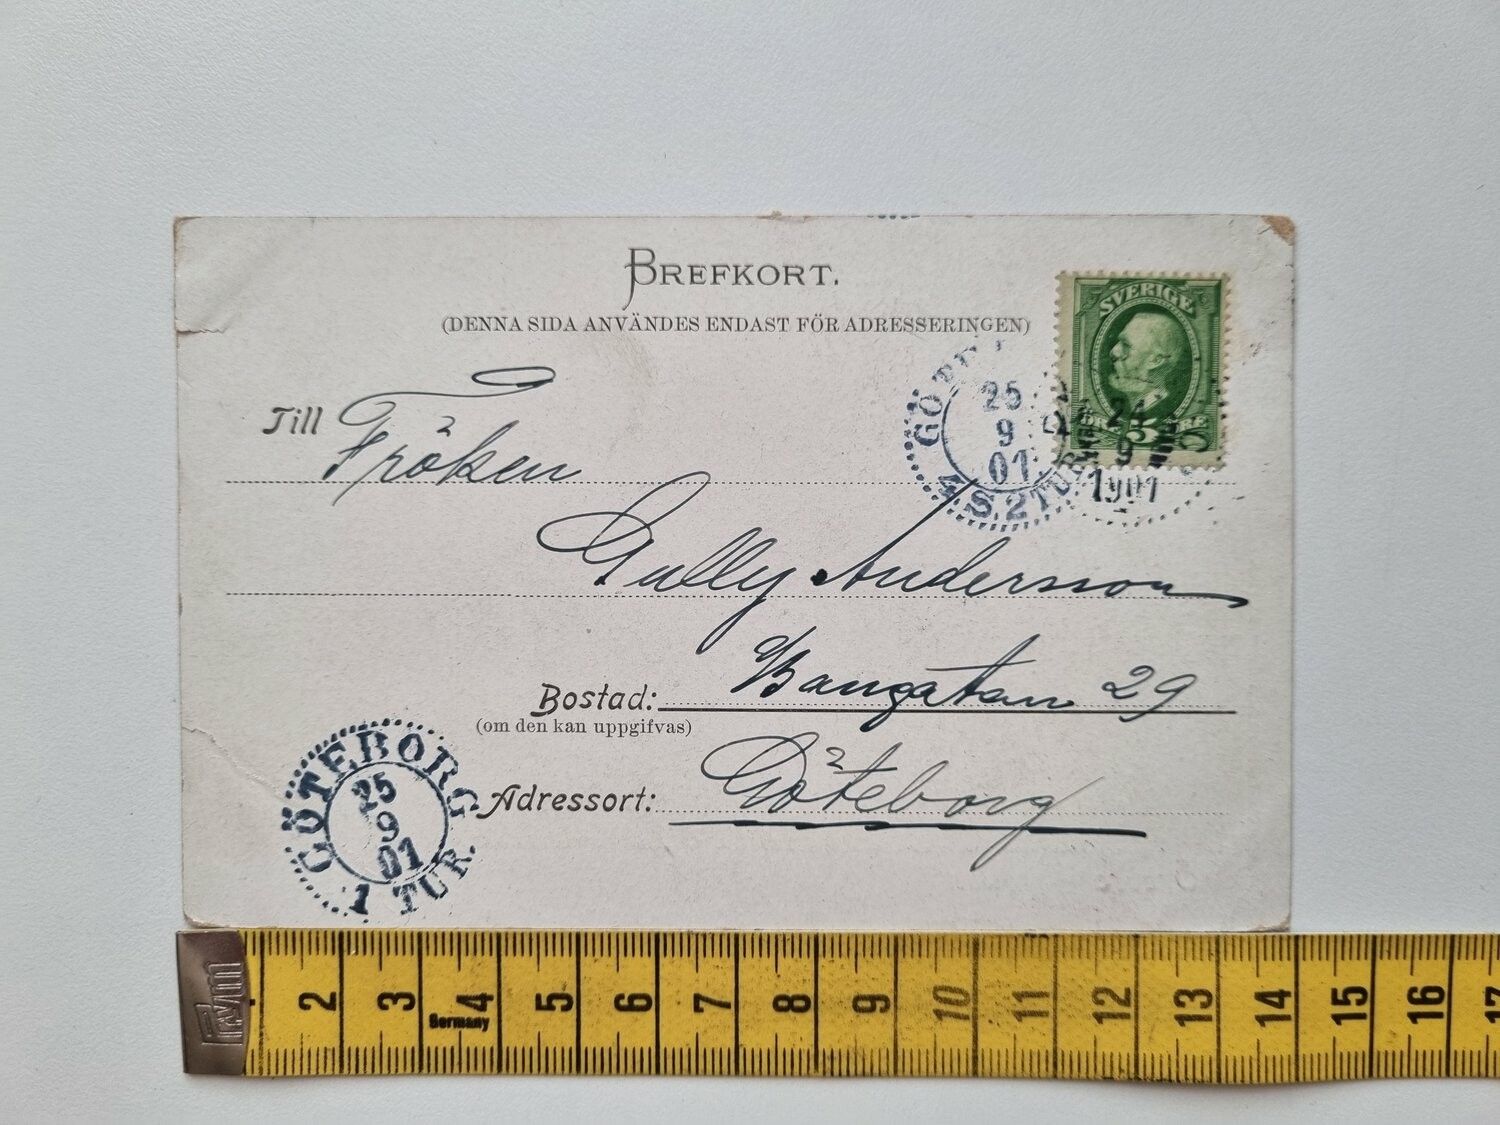 BREFKORT.
(DENNA SIDA ANVÄNDES ENDAST FÖR ADRESSERINGEN)
SVERIGE
5
Till Fröken
GÖTE
25
9
01
4 S. 2 TUR
24
9
1901
Gully Andersson
Bostad: Bangatan 29
(om den kan uppgifvas)
Adressort: Göteborg
GÖTEBORG
25
9
01
1 TUR.
2 3 4 5 6 7 8 9 10 11 12 13 14 15 16 17
Germany